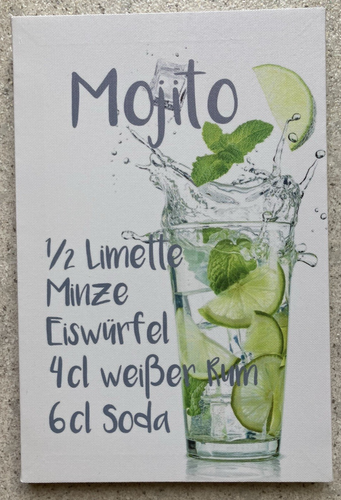 Mojito
1/2 Limette
Minze
Eiswürfel
4cl weißer Rum
6cl Soda